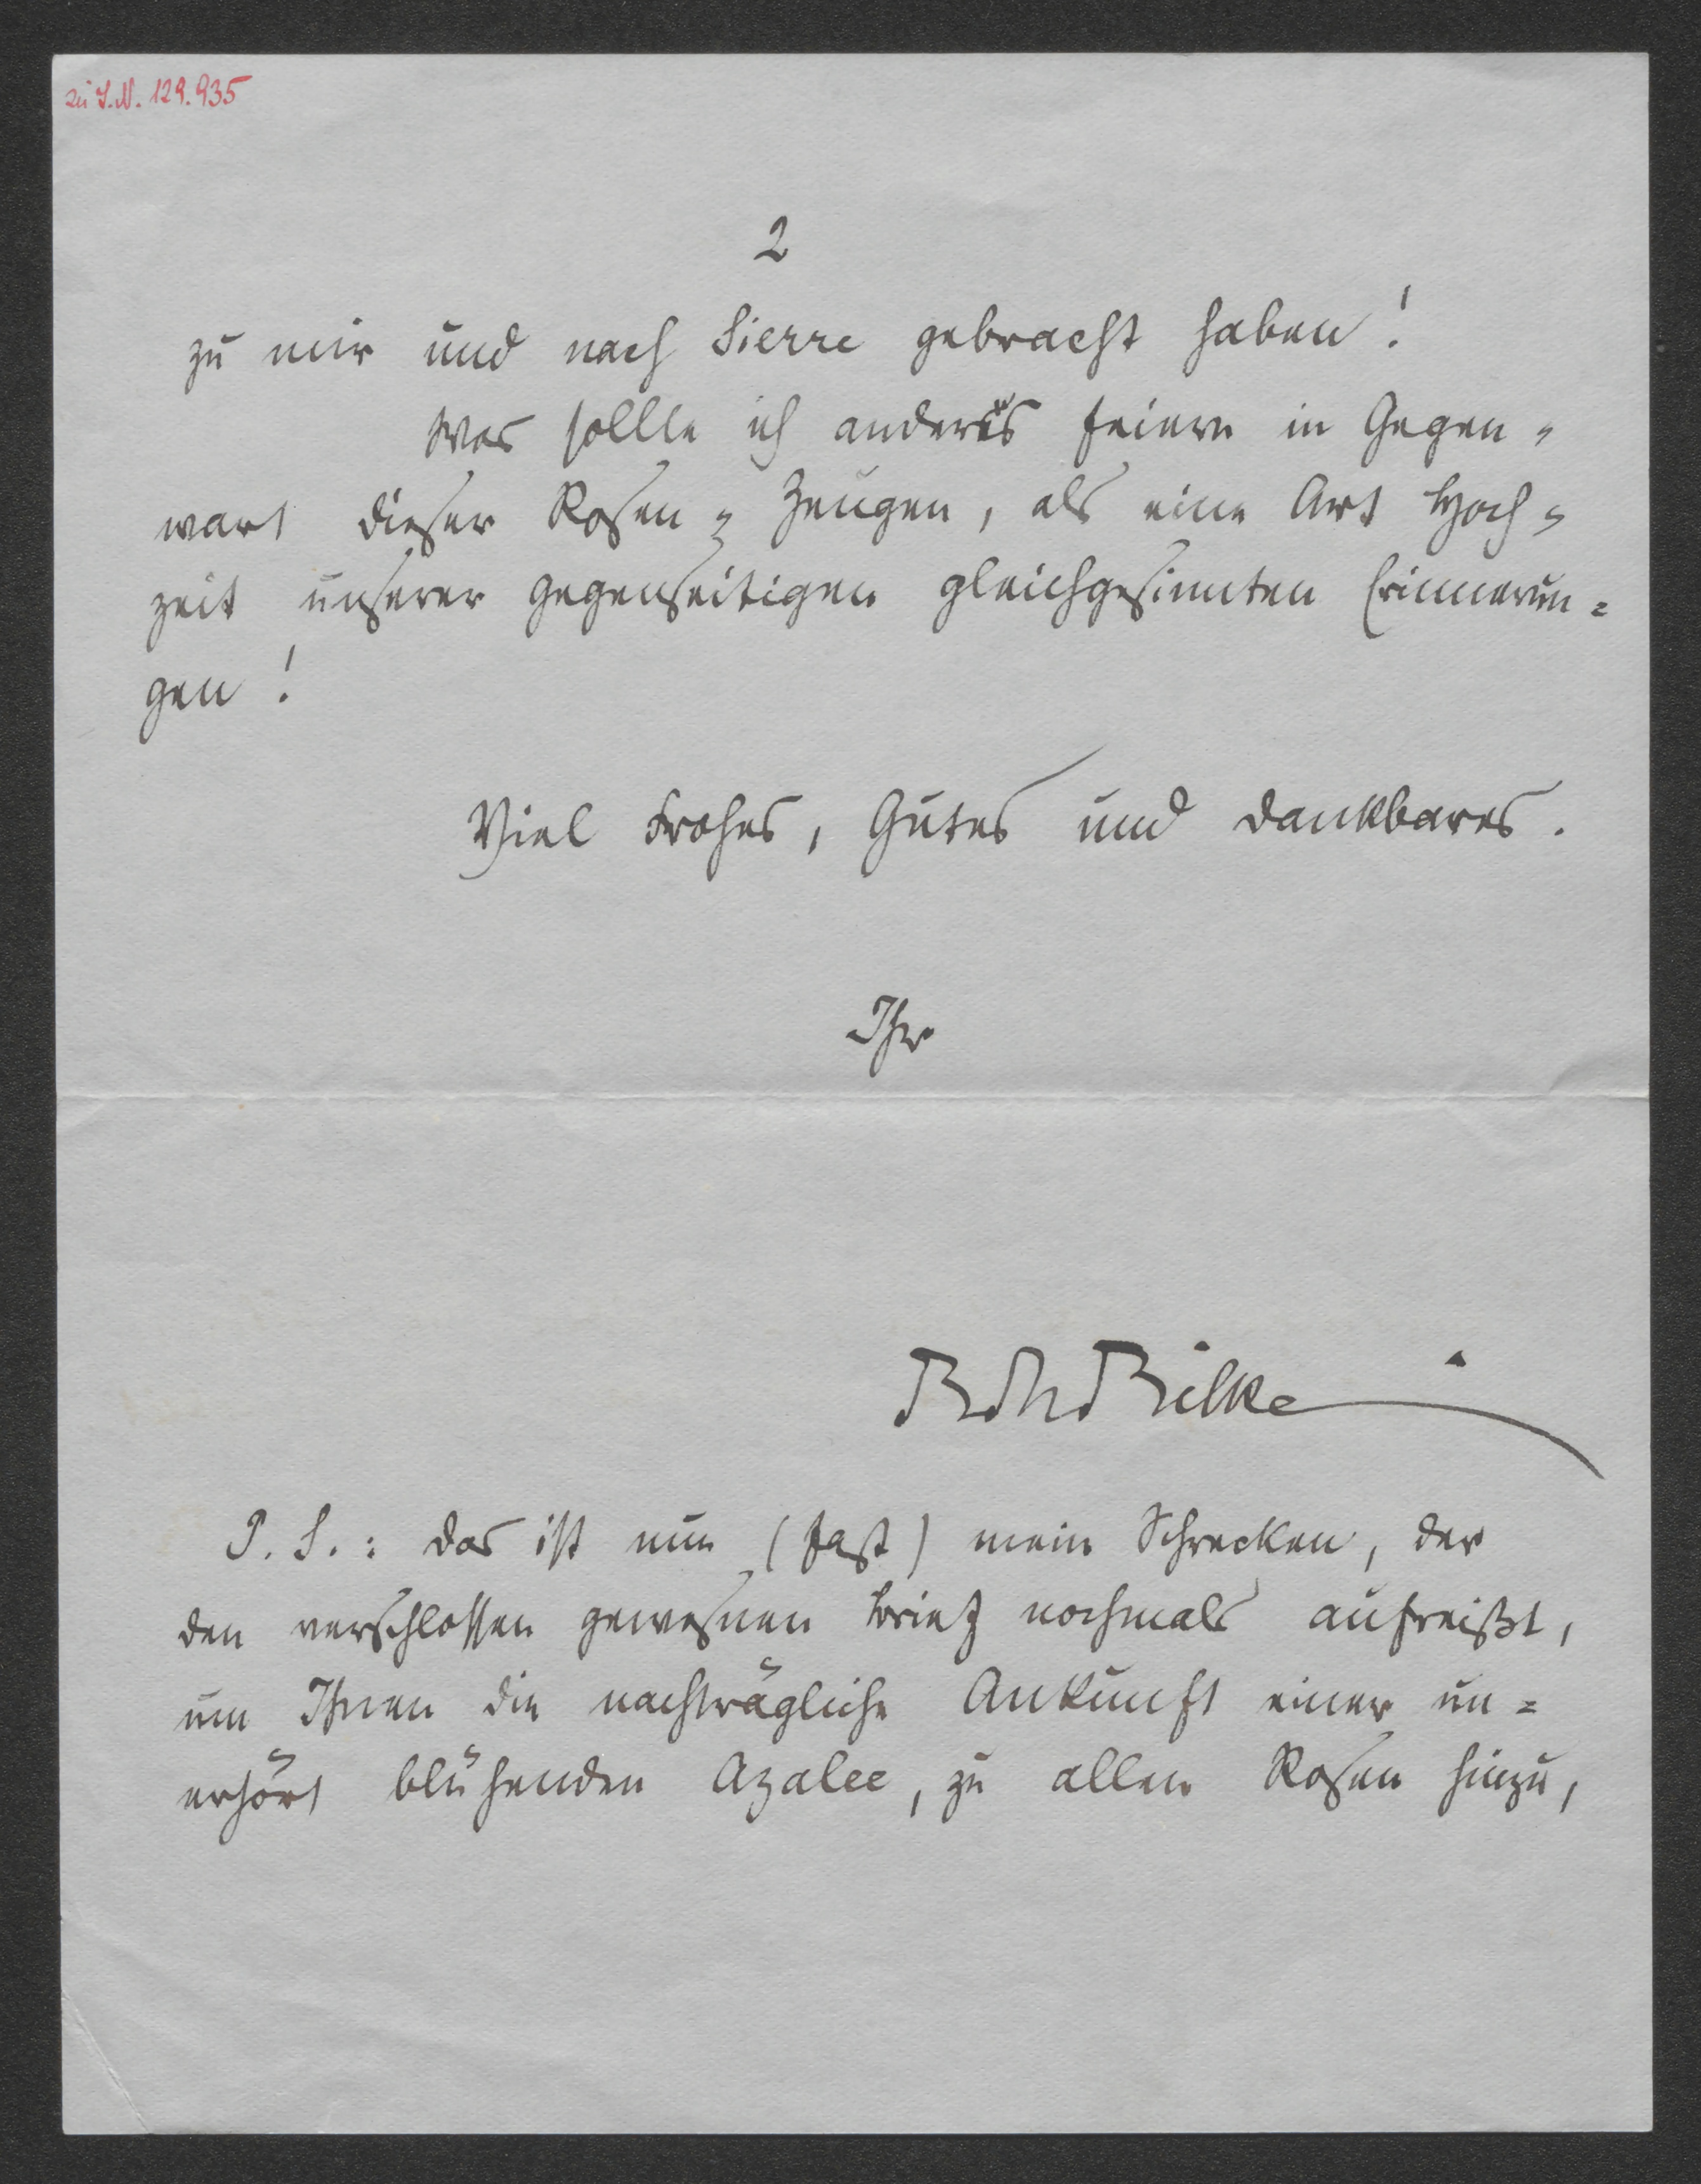 zu I.N. 129.935
2
zu mir und nach Sierre gebracht haben!
Was sollte ich anders feiern in Gegen=
wart dieser Rosen = Zeugen, als eine Art Hoch=
zeit unserer gegenseitigen gleichgesinnten Erinnerun=
gen!
Viel Frohes, Gutes und Dankbares.
Ihr
RMRilke
P. S.: Das ist nun (fast) mein Schrecken, der
den verschlossen gewesnen Brief nochmals aufreißt,
um Ihnen die nachträgliche Ankunft einer un=
erhört blühenden Azalee, zu allen Rosen hinzu,